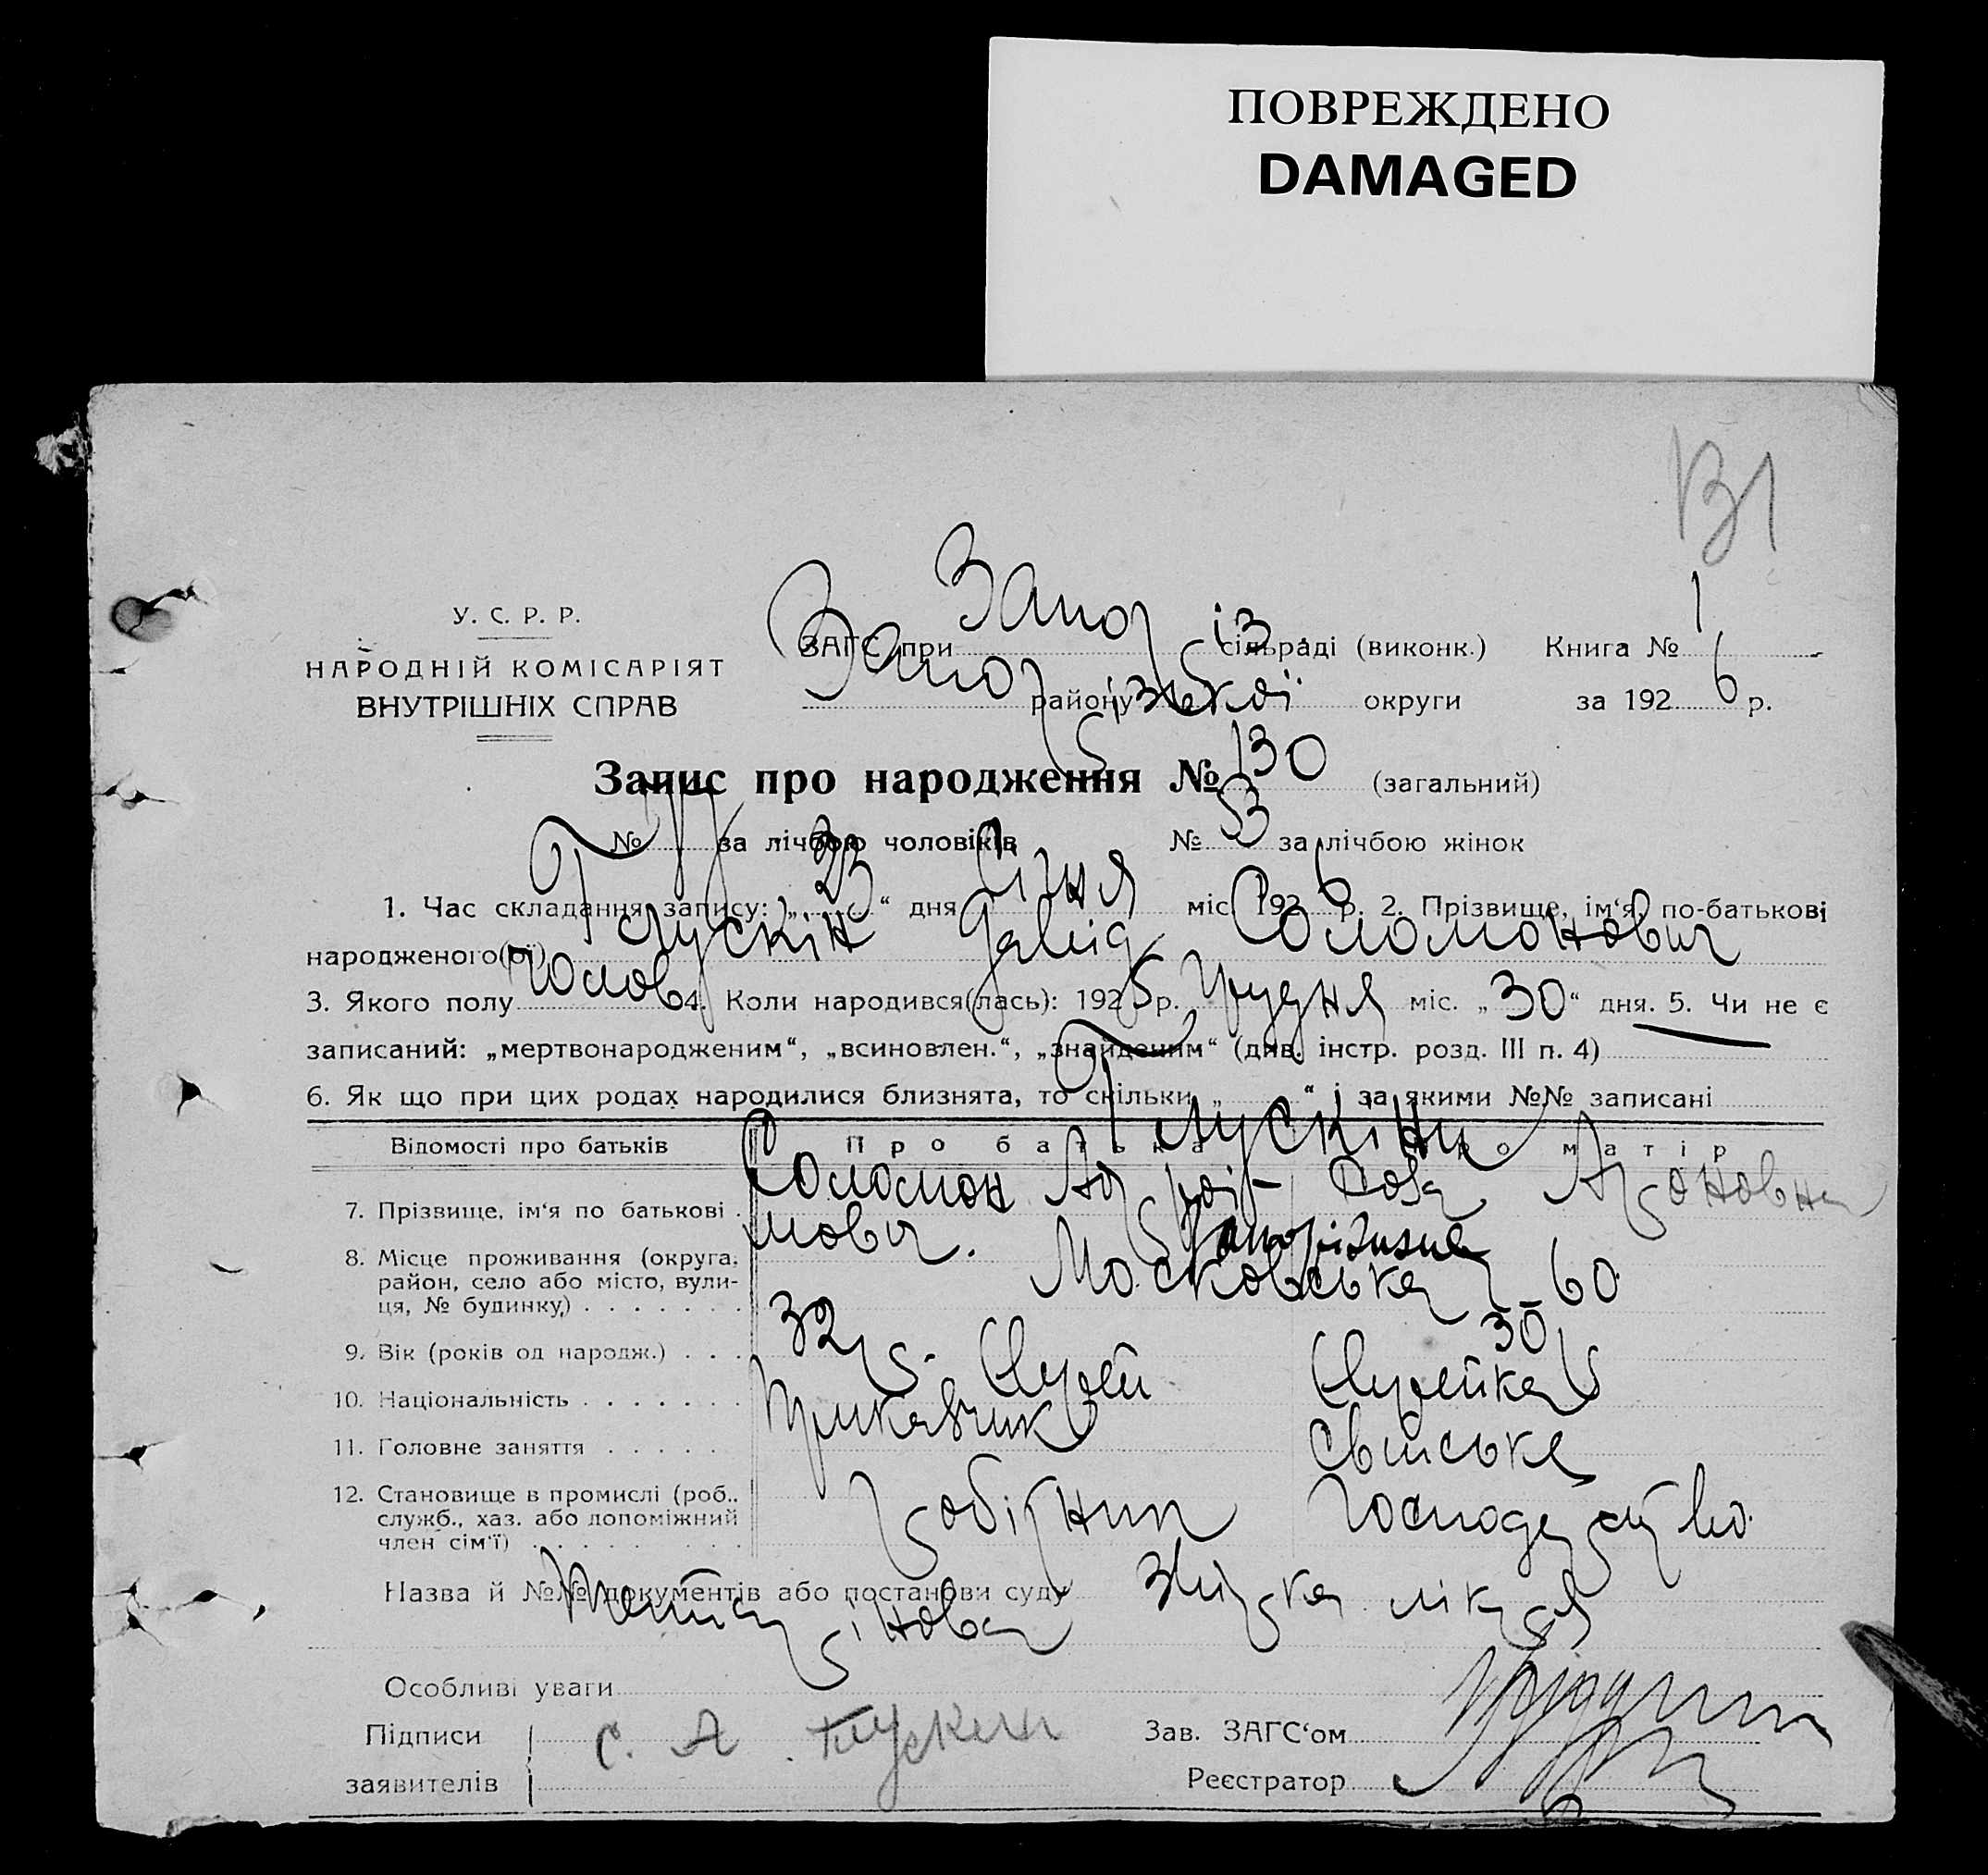 ПОВРЕЖДЕНО
DAMAGED
131
У. С. Р. Р.
НАРОДНІЙ КОМІСАРІЯТ
ВНУТРІШНІХ СПРАВ
ЗАГС при Запоріз сільраді (виконк.) Книга № 1
району Запорізької округи за 1926 р.
Запис про народження № 130 (загальний)
№ за лічбою чоловіків № за лічбою жінок
1. Час складання запису: „23“ дня Січня міс. 1926 р. 2. Прізвище, ім‘я, по-батькові
народженого(ої) Глускін Давід Соломонович
3. Якого полу Чолов 4. Коли народився(лась): 1925 р. Грудня міс. „30“ дня. 5. Чи не є
записаний: „мертвонародженим“, „всиновлен.“, „знайденим“ (див. інстр. розд. III п. 4)
6. Як що при цих родах народилися близнята, то скільки „ “ і за якими №№ записані
Глускіни
Відомості про батьків Про батька Про матір
7. Прізвище, ім‘я по батькові . Соломон Ароновна
8. Місце проживання (округа, район, село або місто, вулиця, № будинку) . . . . . . . Запоріжжя Московська 60
9. Вік (років од народж.) . . . 32 р. 30 р
10. Національність . . . . . . . Єврей Єврейка
11. Головне заняття . . . . . Прикавчик свійське
12. Становище в промислі (роб., служб., хаз. або допоміжний член сім‘ї) . . . . . . . . робітник господарство
Назва й №№ документів або постанови суду лікаря
Особливі уваги
Підписи С. А. Глускин Зав. ЗАГС‘ом
заявителів Реєстратор